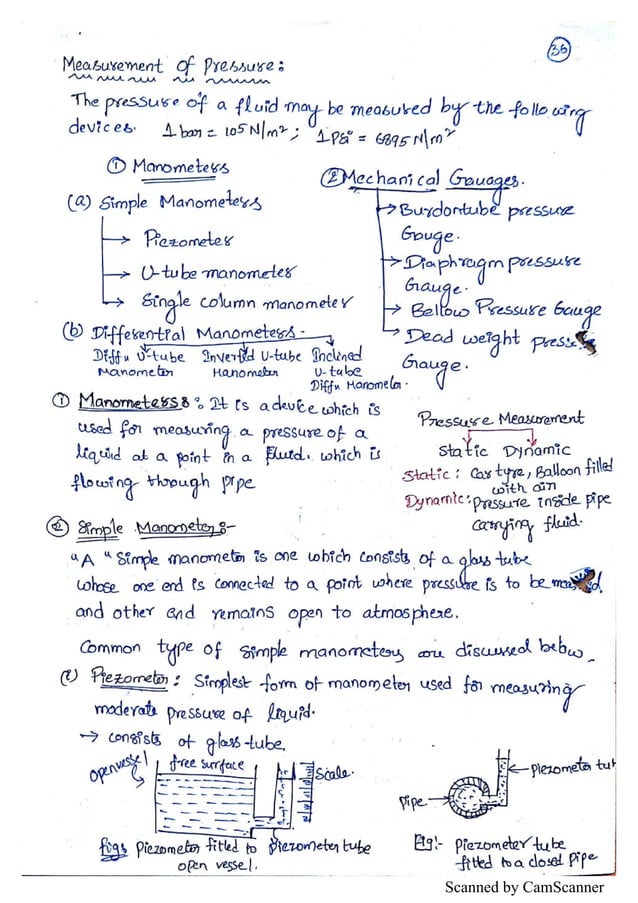 36
Measurement of Pressure:
The pressure of a fluid may be measured by the following
devices. 1 bar = 10⁵ N/m²; 1 Psi = 6895 N/m²
① Manometers
(a) Simple Manometers
→ Piezometer
→ U-tube manometer
→ Single column manometer
(b) Differential Manometers.
Diffn U-tube Manometer
Inverted U-tube Manometer
Inclined U-tube Diffn Manometer.
② Mechanical Gauages.
→ Burdontube pressure
Gouge.
→ Diaphragm pressure
Gauge.
→ Bellow Pressure Gauge
→ Dead weight
Gauge.
① Manometers: It is a device which is
used for measuring a pressure of a
liquid at a point in a fluid. which is
flowing through pipe
Pressure Measurement
Static Dynamic
Static: Car tyre, Balloon filled
with air
Dynamic: pressure inside pipe
carrying fluid.
② Simple Manometers:-
"A" Simple manometer is one which consists of a glass tube
whose one end is connected to a point where pressure is to be
and other end remains open to atmosphere.
Common type of simple manometers are discussed below.
(i) Piezometer: Simplest form of manometer used for measuring
moderate pressure of liquid.
→ consists of glass-tube.
open vessel
free surface
Scale.
Piezometer tube
fig: Piezometer fitted to
open vessel.
piezometer tub
pipe
Fig:- Piezometer tube
fitted to a closed pipe
Scanned by CamScanner